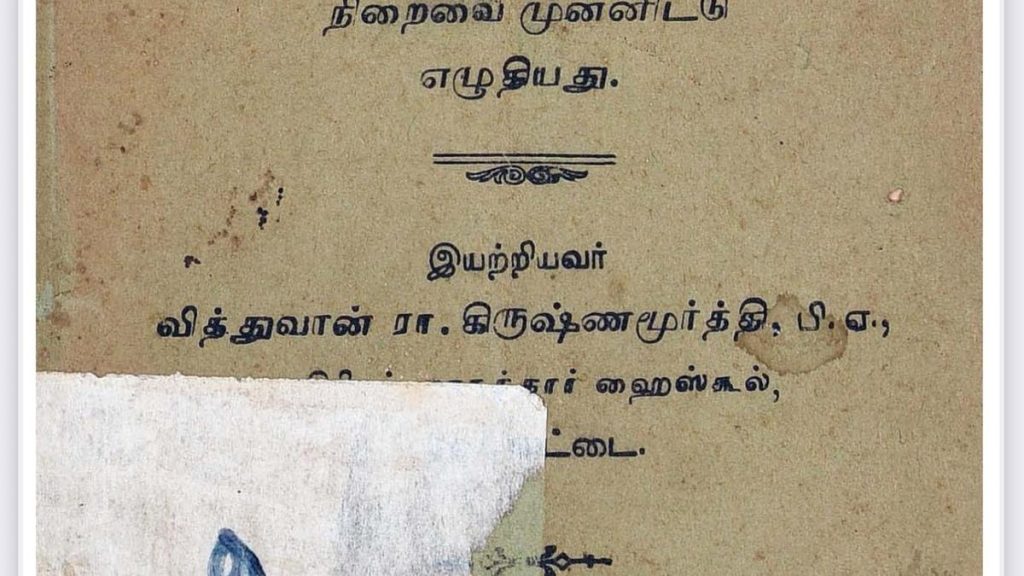 நிறைவை முன்னிட்டு
எழுதியது.
இயற்றியவர்
வித்துவான் ரா. கிருஷ்ணமூர்த்தி, பி. ஏ.,
ஹைஸ்கூல்,